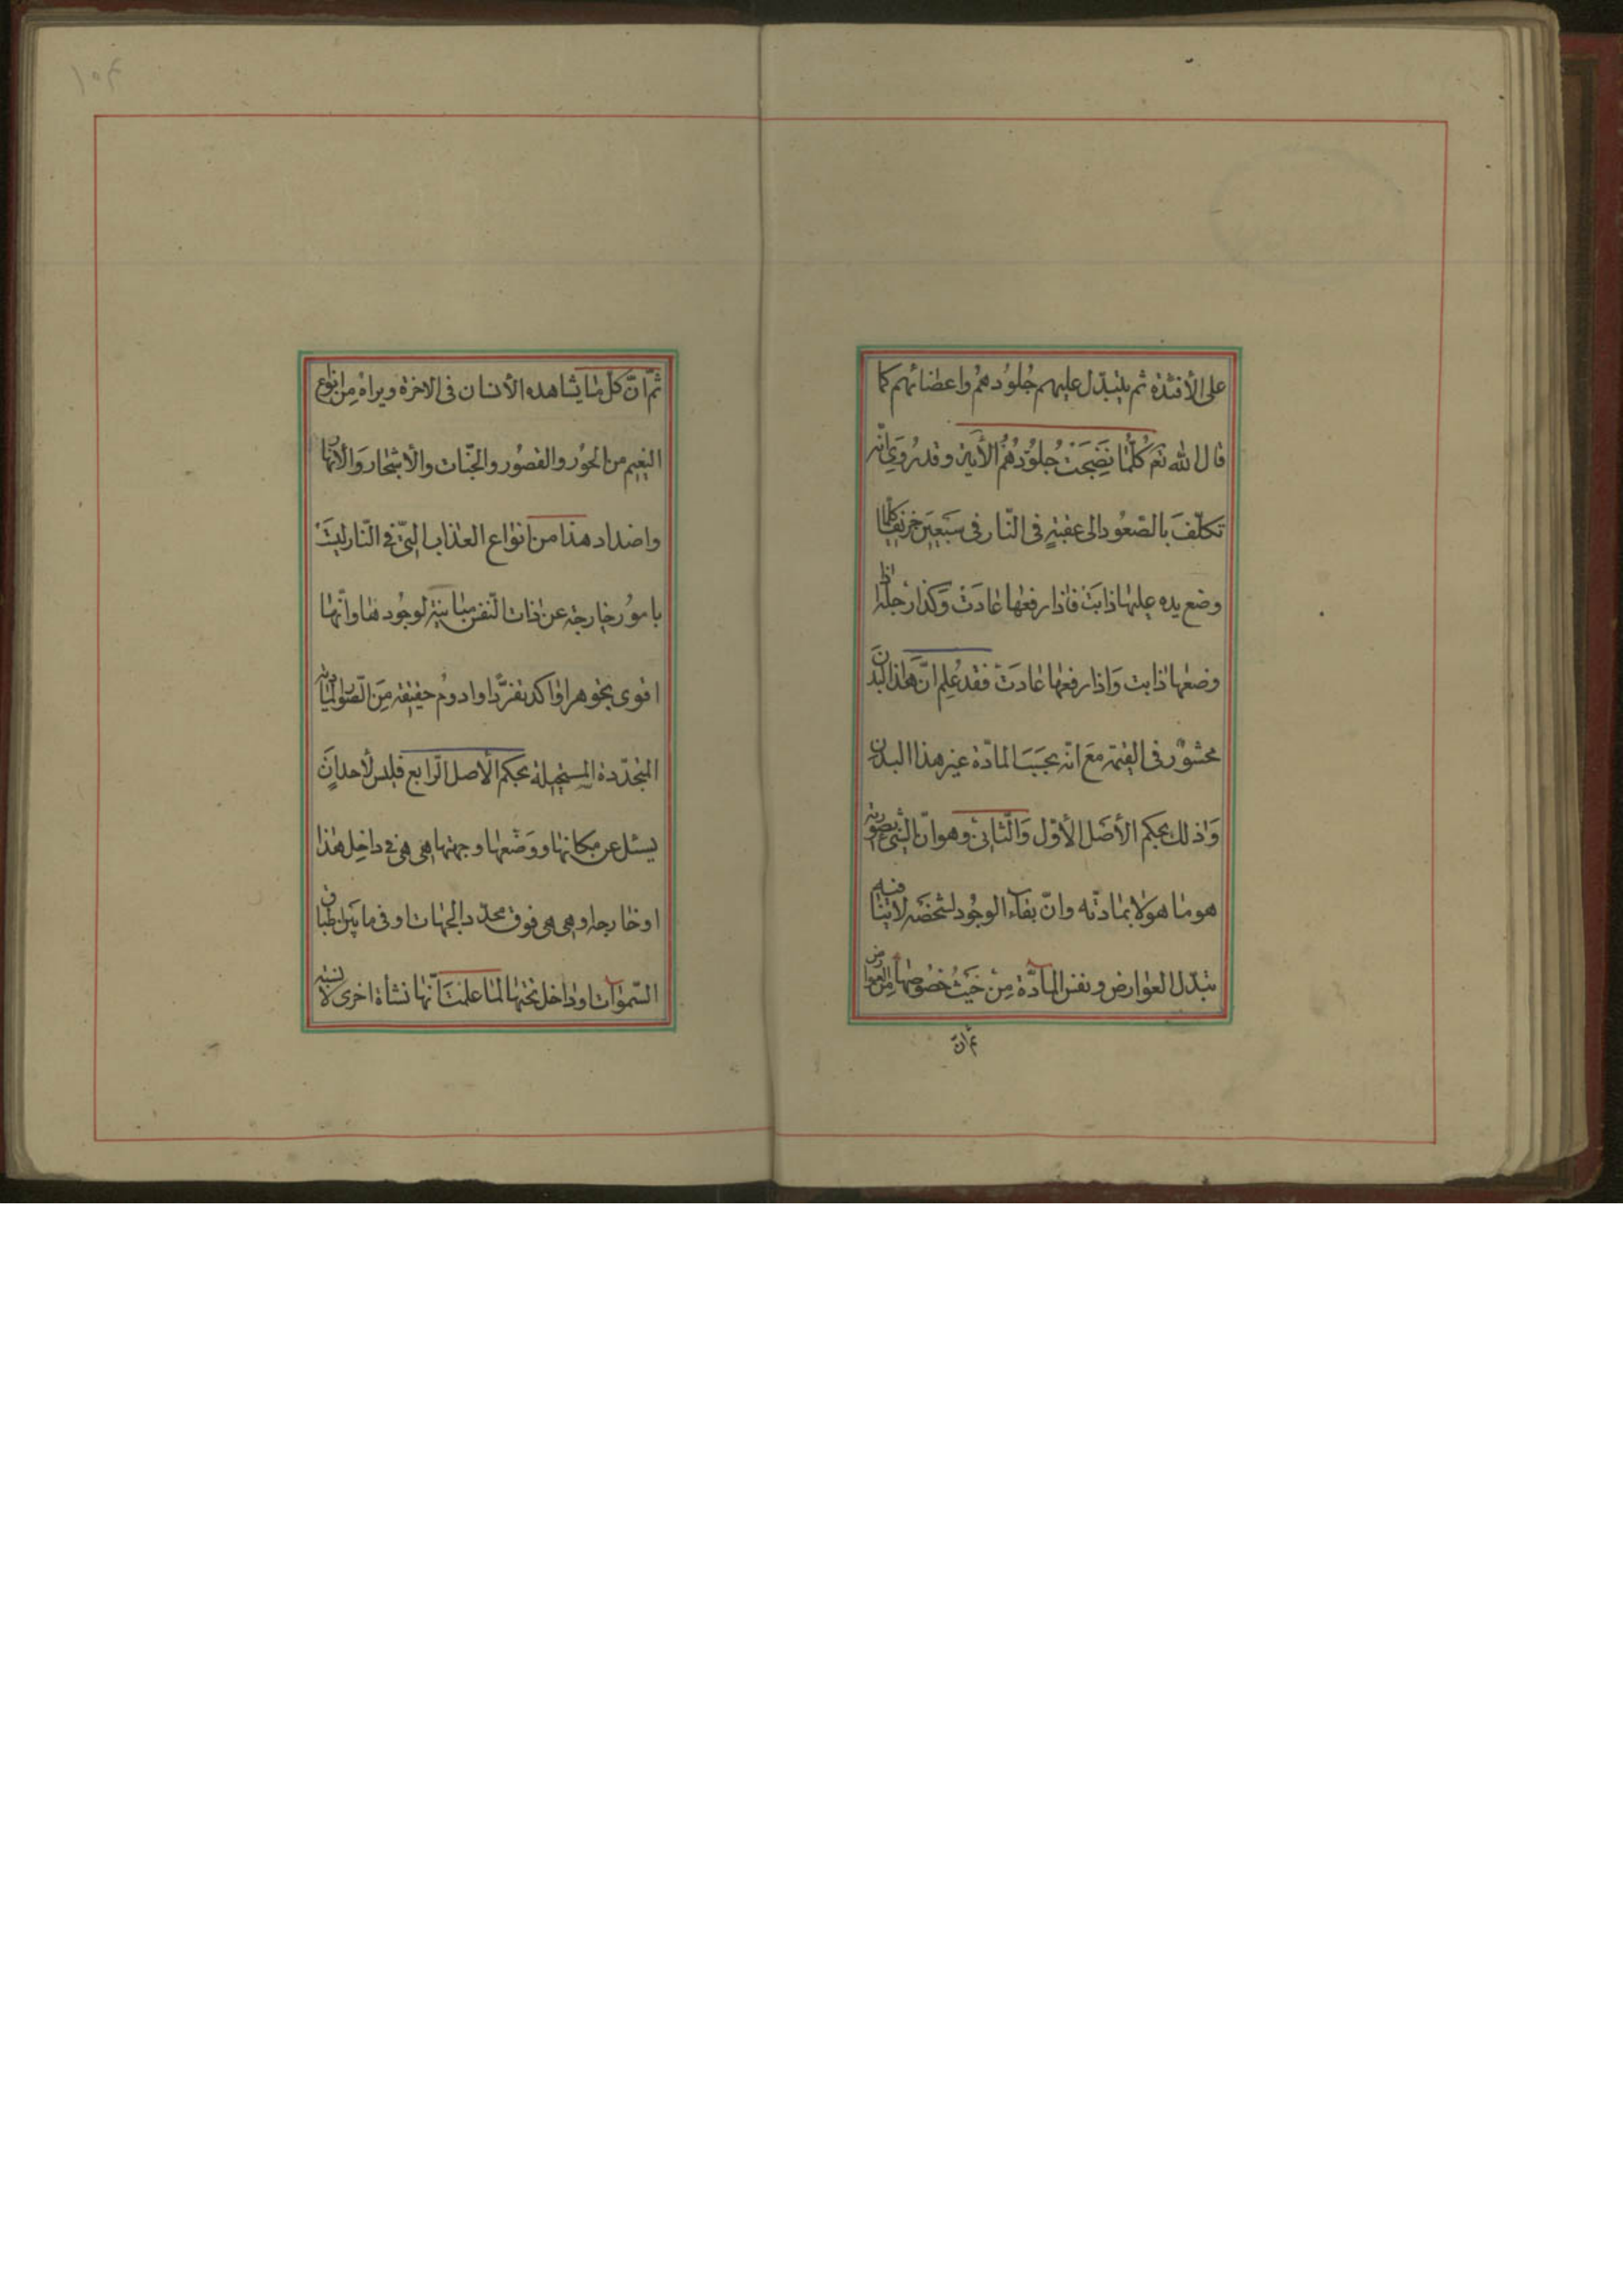 على الأفئدة ثم يتبدّل عليهم جُلودهُم واعضائهم كما
قال الله تع كُلَّما نَضِجَتْ جُلُوْدُهُمْ الأية وقد رُوِىَ انّه
تكلّفَ بالصّعُود الى عقبةٍ فى النّار فى سَبْعِينَ خريفا كلّما
وضع يده عليها ذابَت فاذا رفعها عادَتْ وَكذا رجله اذا
وضعها ذابت وَاذا رفعها عادَتْ فقد عُلِم انّ هَذا البدن
محشوْر فى القيمة مَعَ انّه بحسَبَ المادّة غير هذا البدن
وَذلك بحكم الأصَل الأوّل وَالثّانىْ وهو انّ الشئ بصورته
هو ما هو لا بمادّته وانّ بقاء الوجُود لشخصَه لا ينافيه
تبدّل العوارض ونفس المادَّة مِنْ حَيْثُ خصُوصها مِن العوارض
ثم انّ
١٠٤
ثمّ انّ كلّ ما يشاهده الأنسان فى الاخرة ويراهُ مِن انواع
النعيم من الحوْر والقصُور والجنّات والأشجار وَالأنهار
واضداد هذا من انواع العذاب الّتىّ فى النّار ليسَتْ
بامُور خارجة عن ذات النّفس مباينة لوجُودها وانّها
اقوى تجوهرا واكد تقرّرا وادومُ حقيقة مِنَ الصّور الماديّة
المتجدّدة المستحيلة بحكم الأصل الرّابع فليس لأحد انَ
يسئل عن مكانها ووَضْعها وجهتها هى هى فى داخِل هذا
او خارجه او هى هى فوق محدّد الجهات او فى ما بَيْن طباق
السّمواتَ او داخل تحتها لما علمت انّها نشأة اخرى لا نسبة